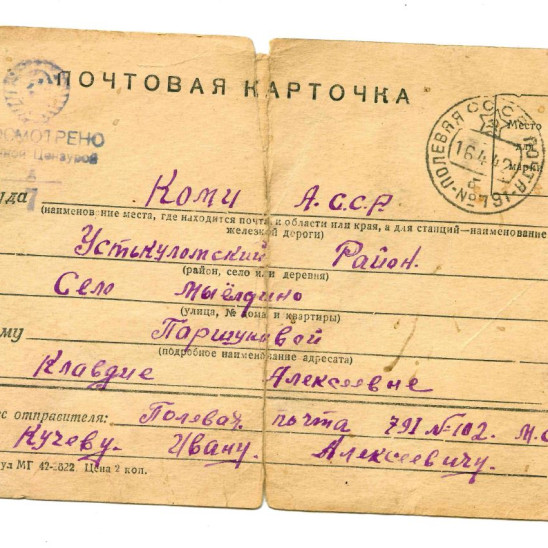 ПОЧТОВАЯ КАРТОЧКА
ОСМОТРЕНО
ной Цензурой
СССР ПОЛЕВАЯ ПОЧТА
16.4.42
Место
для
марки
уда Коми А.С.С.Р.
(наименование места, где находится почта и области или края, а для станций—наименование
железной дороги)
Устькуломский Район.
(район, село или деревня)
Село Мыёлдино
(улица, № дома и квартиры)
му Паршуковой
(подробное наименование адресата)
Клавдие Алексеевне
с отправителя: Полевая почта 791 № 102. М.С
Кучеву. Ивану. Алексеевичу.
ул МГ 42-2822. Цена 2 коп.